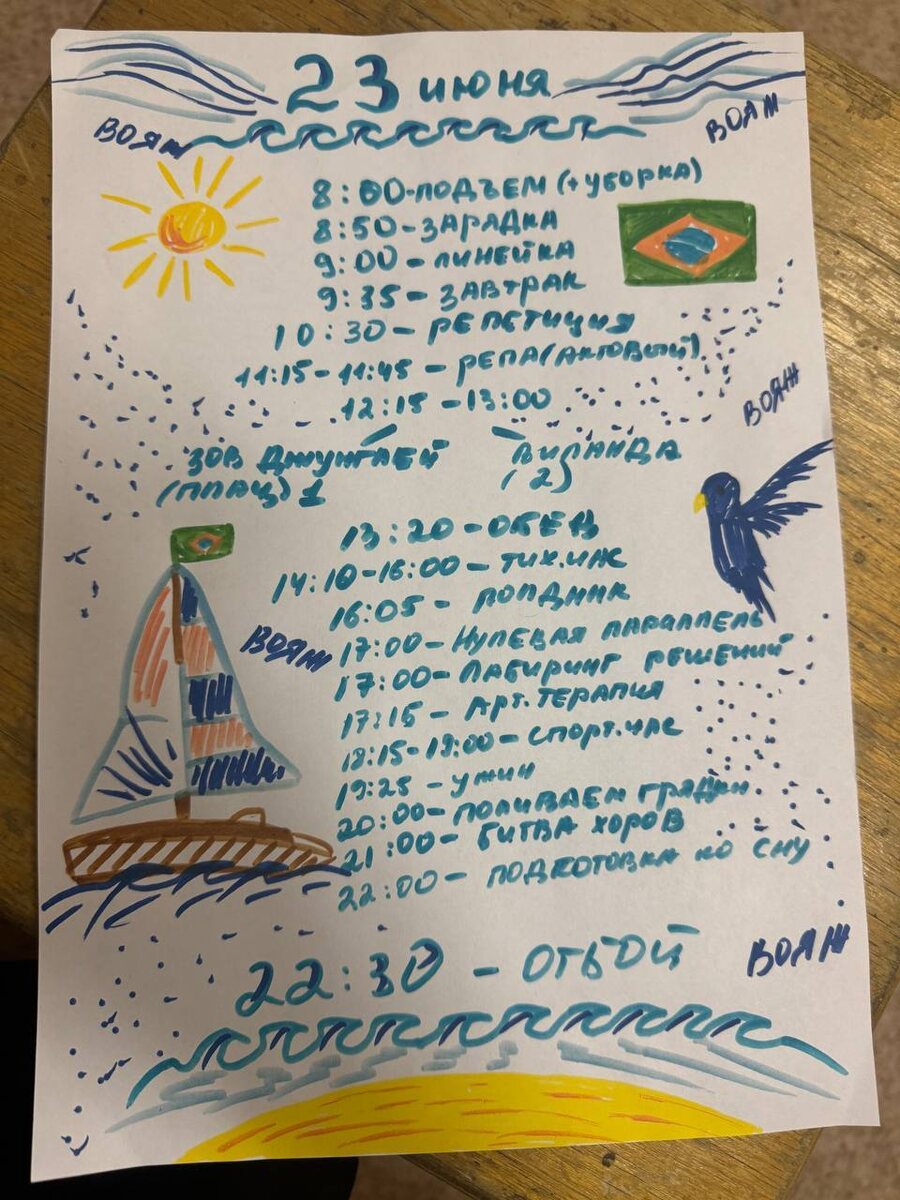 23 июня
ВОЯЖ
ВОЯЖ
8:00-ПОДЪЕМ (+УБОРКА)
8:50-ЗАРЯДКА
9:00-ЛИНЕЙКА
9:35-ЗАВТРАК
10:30-РЕПЕТИЦИЯ
11:15-11:45-РЕПА(АКТОВЫЙ)
12:15-13:00
ВОЯЖ
ЗОВ ДЖУНГЛЕЙ
(ПЛАЦ) 1
(2)
13:20-ОБЕД
14:10-16:00-ТИХ.ЧАС
16:05-ПОЛДНИК
ВОЯЖ
17:00-НУЛЕВАЯ ПАРАЛЛЕЛЬ
17:00-ЛАБИРИНТ РЕШЕНИЙ
17:15-АРТ.ТЕРАПИЯ
18:15-19:00-СПОРТ.ЧАС
19:25-УЖИН
20:00-ПОЛИВАЕМ ГРЯДКИ
21:00-БИТВА ХОРОВ
22:00-ПОДГОТОВКА КО СНУ
22:30-ОТБОЙ
ВОЯЖ